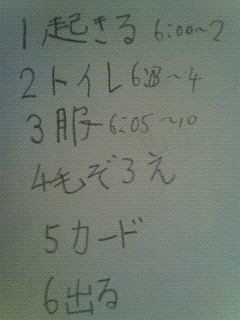 1 起きる 6:00~2
2 トイレ 6:03~4
3 服 6:05~10
4 毛ぞろえ
5 カード
6 出る